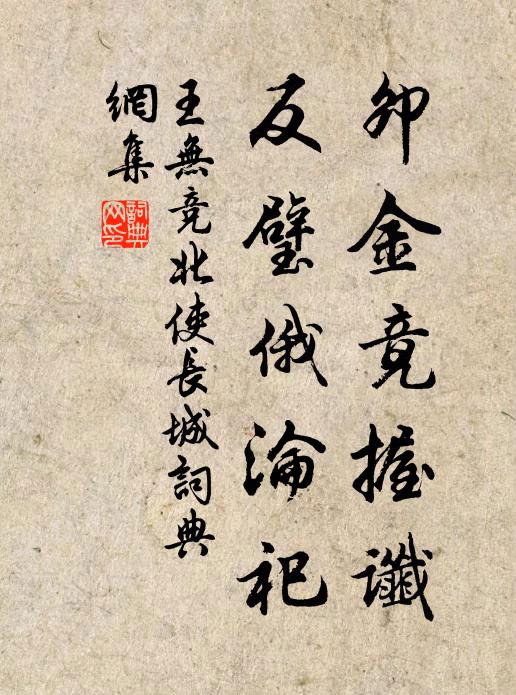 卯金竟握讖
反璧俄淪祀
王無競北使長城詞典
網集
詞典
網印